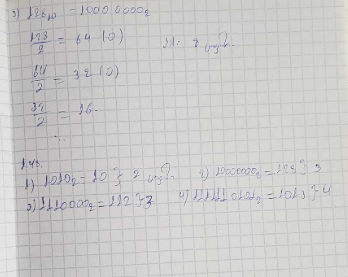 3) 128₁₀ = 10000000₂
128/2 = 64 (0)
64/2 = 32 (0)
32/2 = 16
...
1) 1010₂ = 10 } 2 2) 10000000₂ = 128 } 3
3) 1110000₂ = 112 } 3 4) 1111110101₂ = 1013 } 4